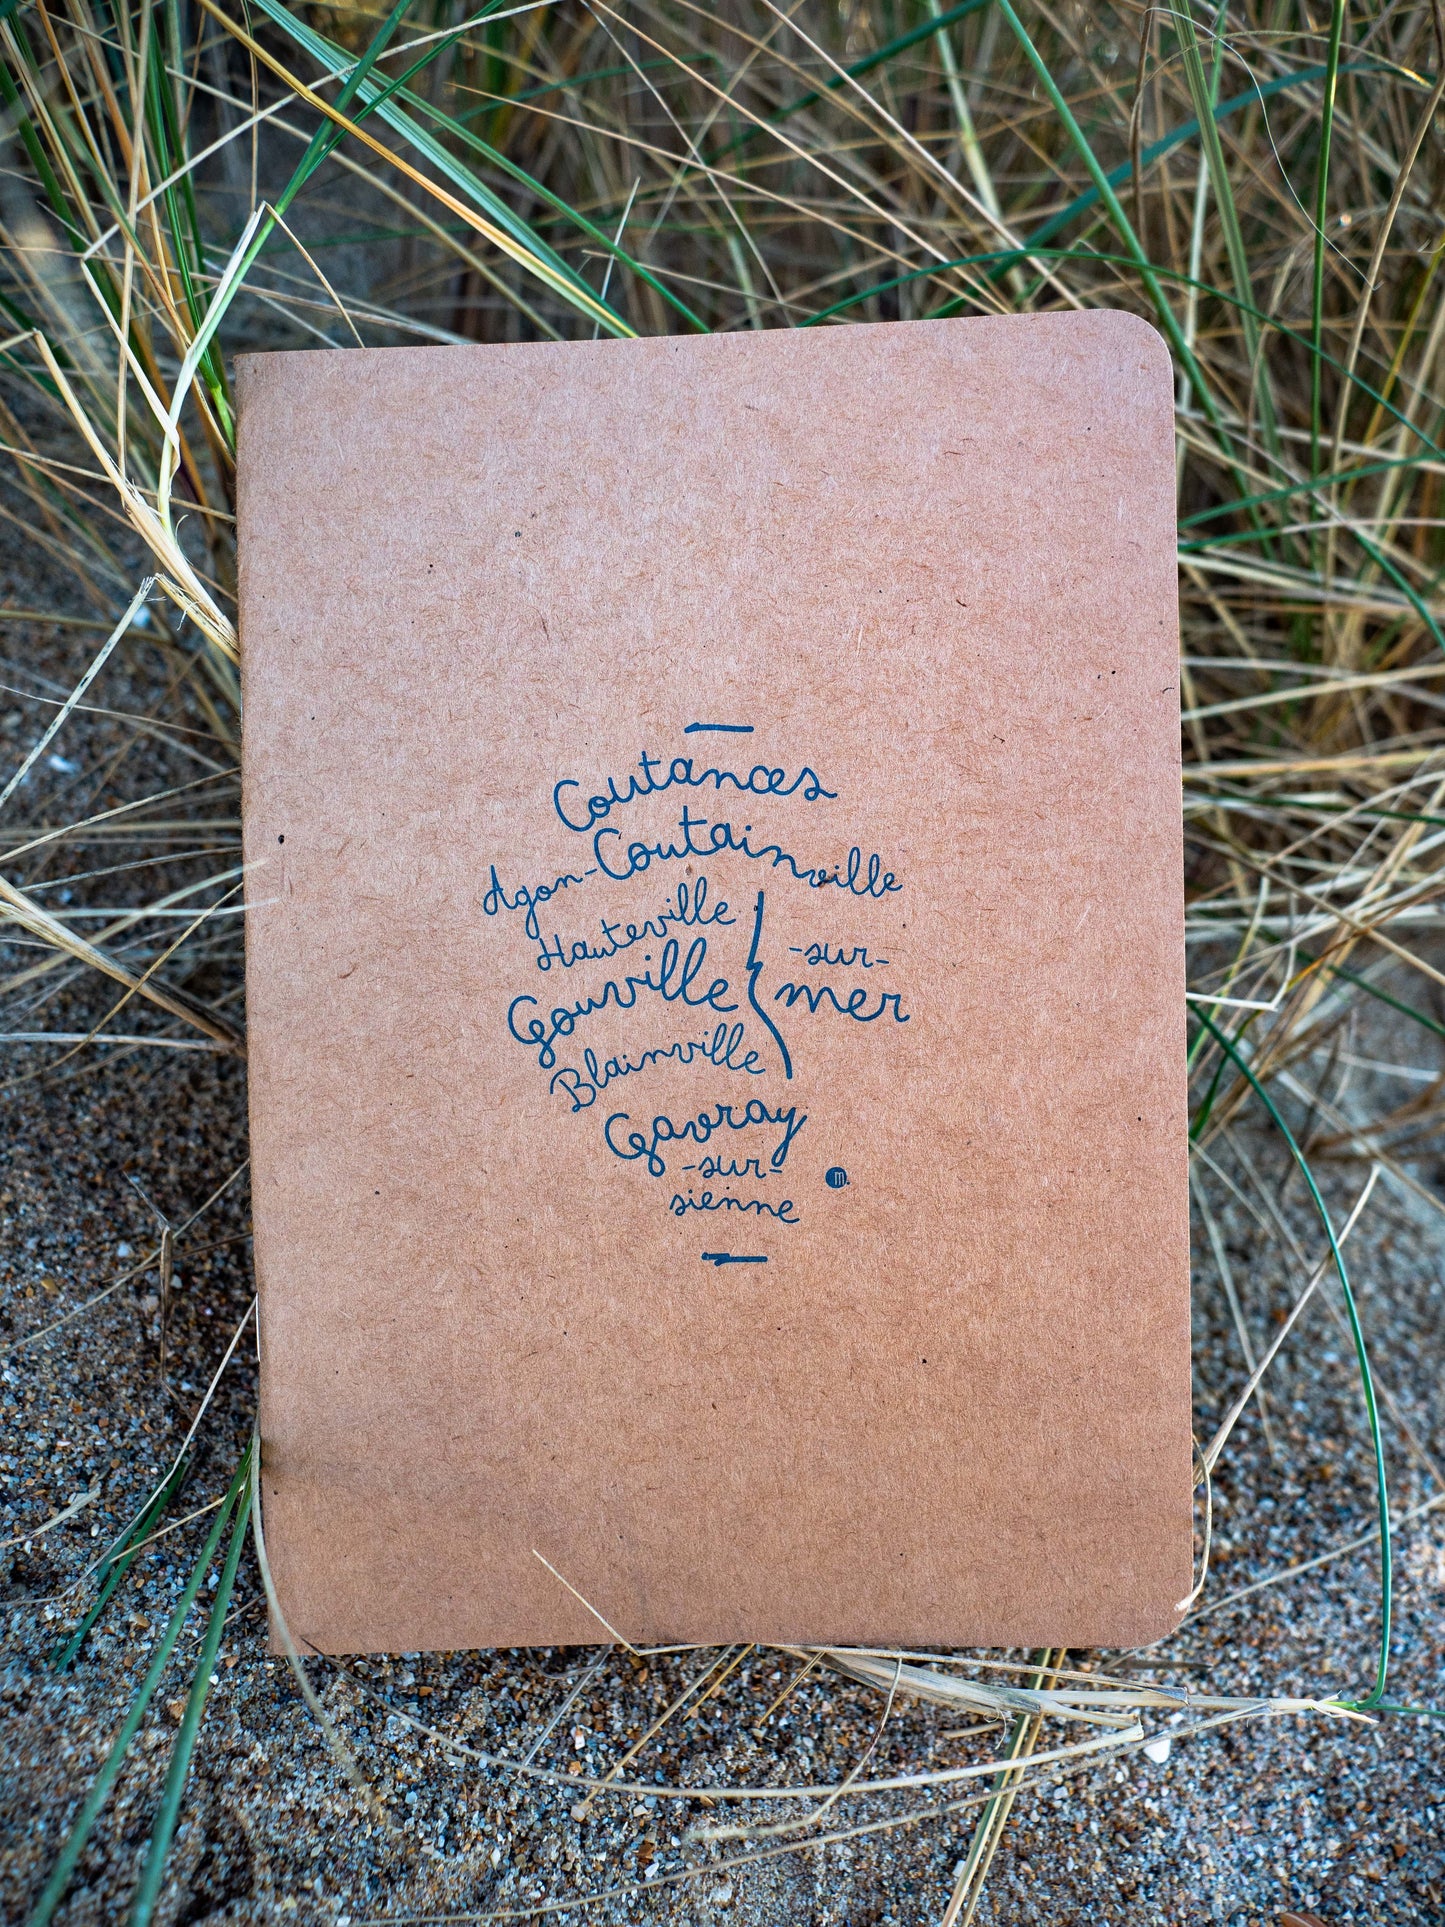 Coutances
Agon-Coutainville
Hauteville
Gouville
Blainville
-sur-
mer
Gavray
-sur-
sienne
m.